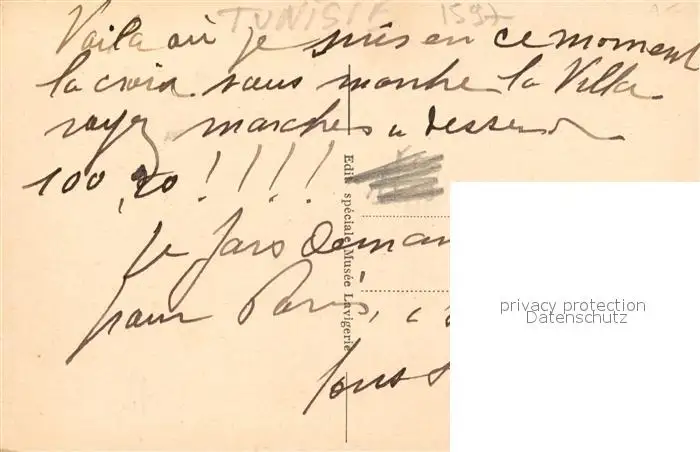 TUNISIE 1597
Voila où je suis en ce moment
la croix vous montre la Villa
voyez marches a
100,20 !!!!
Je pars Deman
pour Paris, c
Edit. spéciale Musée Lavigerie
privacy protection
Datenschutz